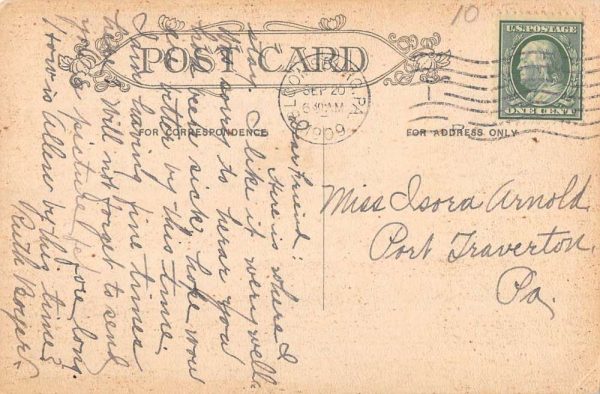 10
U.S. POSTAGE
ONE CENT
POST CARD
BLOOMSBURG, PA.
SEP 20
6 30 AM
1909
FOR CORRESPONDENCE
FOR ADDRESS ONLY
Miss Isora Arnold
Port Traverton
Pa.
Dear friend:
Here is where I
stay. I like it very well
Was sorry to hear you
had been sick, hope now
are better by this time.
I am having fine times
here. Will not forget to send
you a picture before long.
How is Allen by this time?
Ruth Boyer.